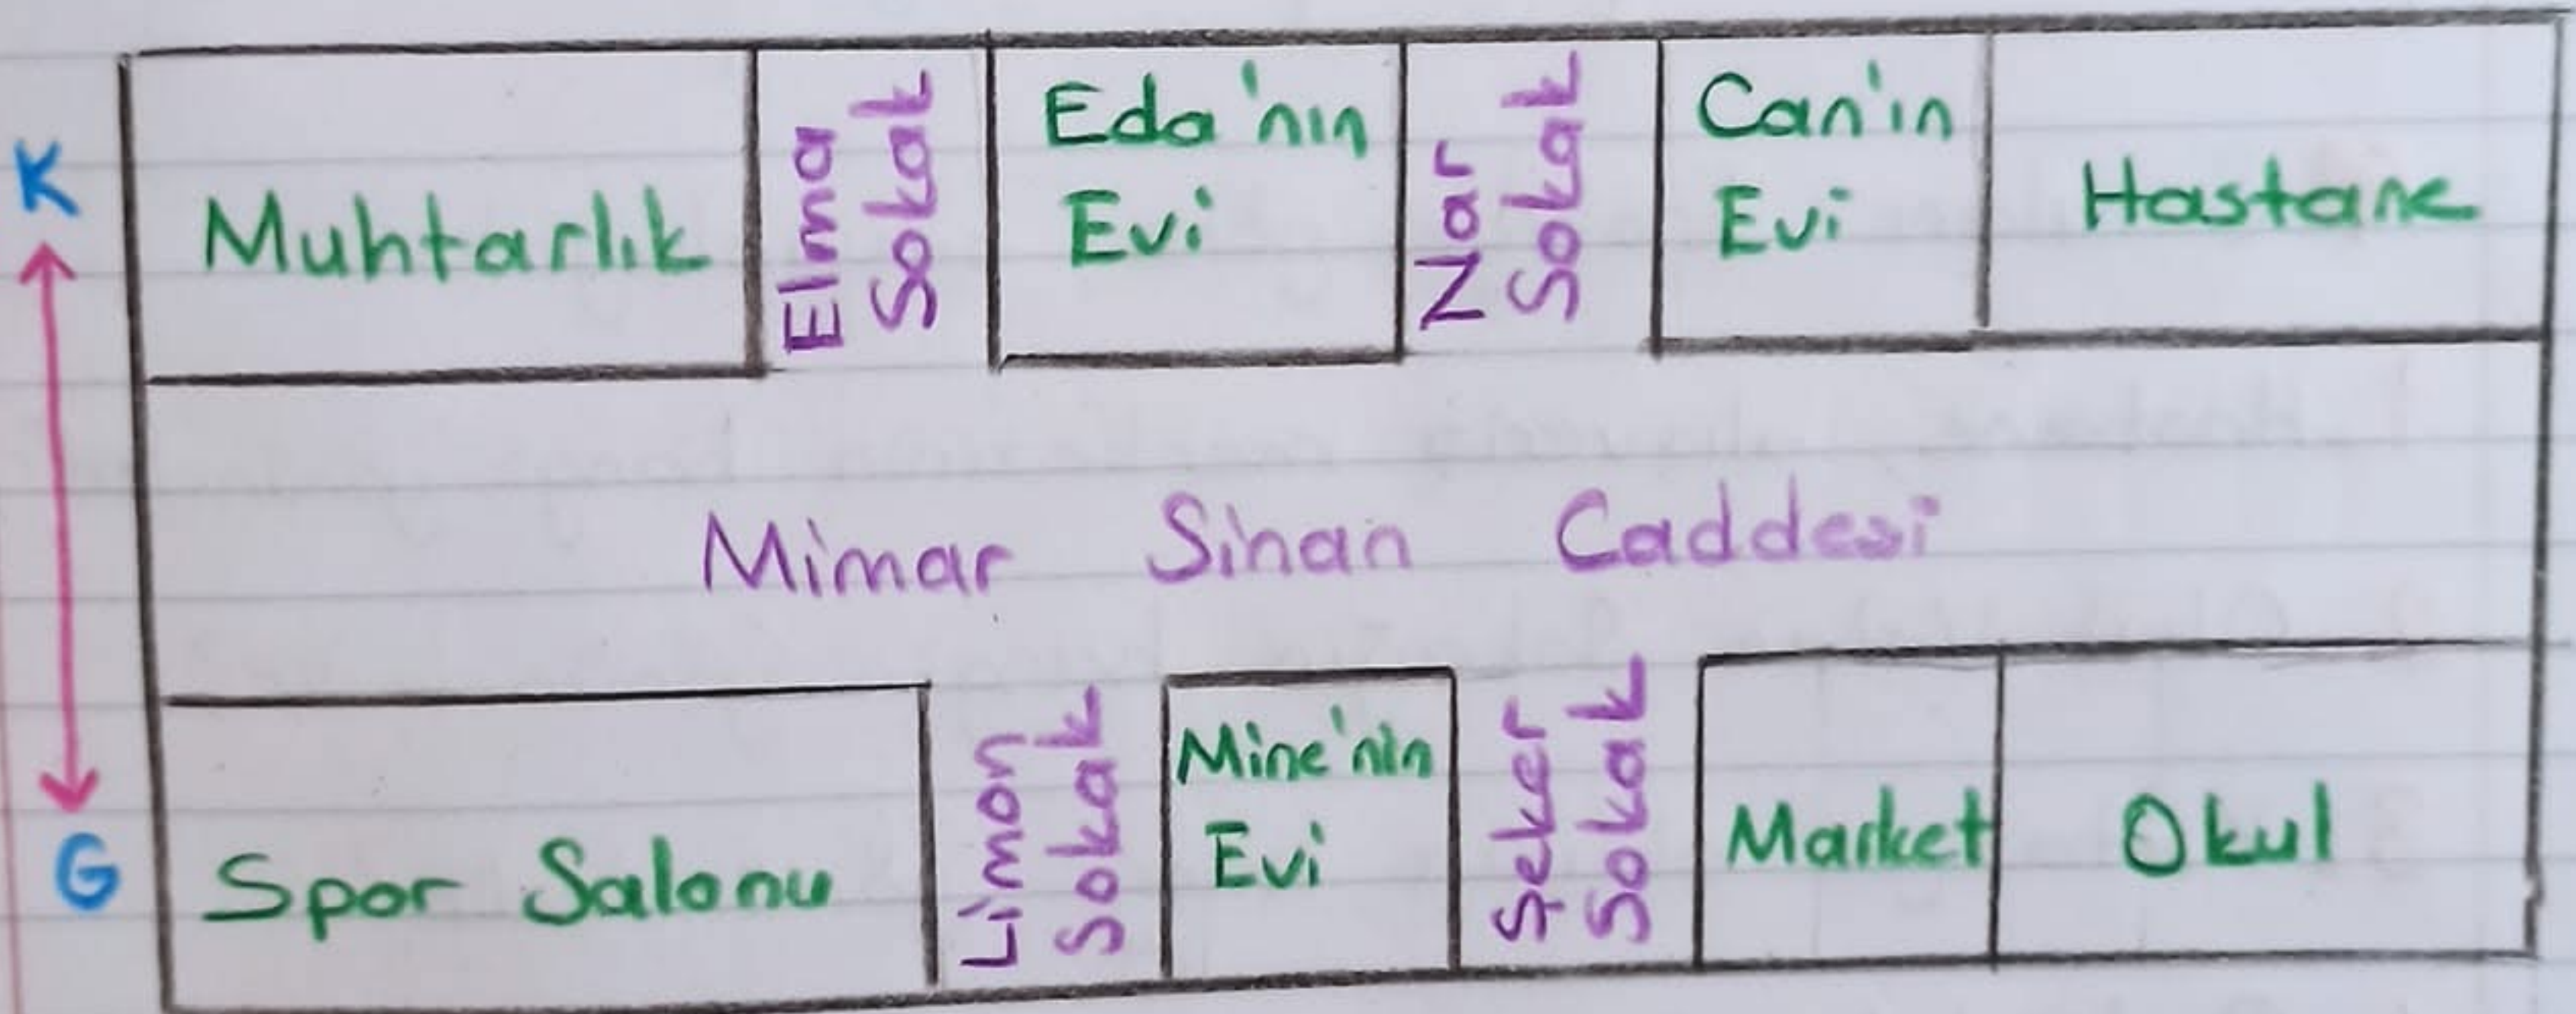 K
Muhtarlık
Elma
Sokak
Eda'nın
Evi
Nar
Sokak
Can'ın
Evi
Hastane
Mimar Sinan Caddesi
G
Spor Salonu
Limon
Sokak
Mine'nin
Evi
Şeker
Sokak
Market
Okul